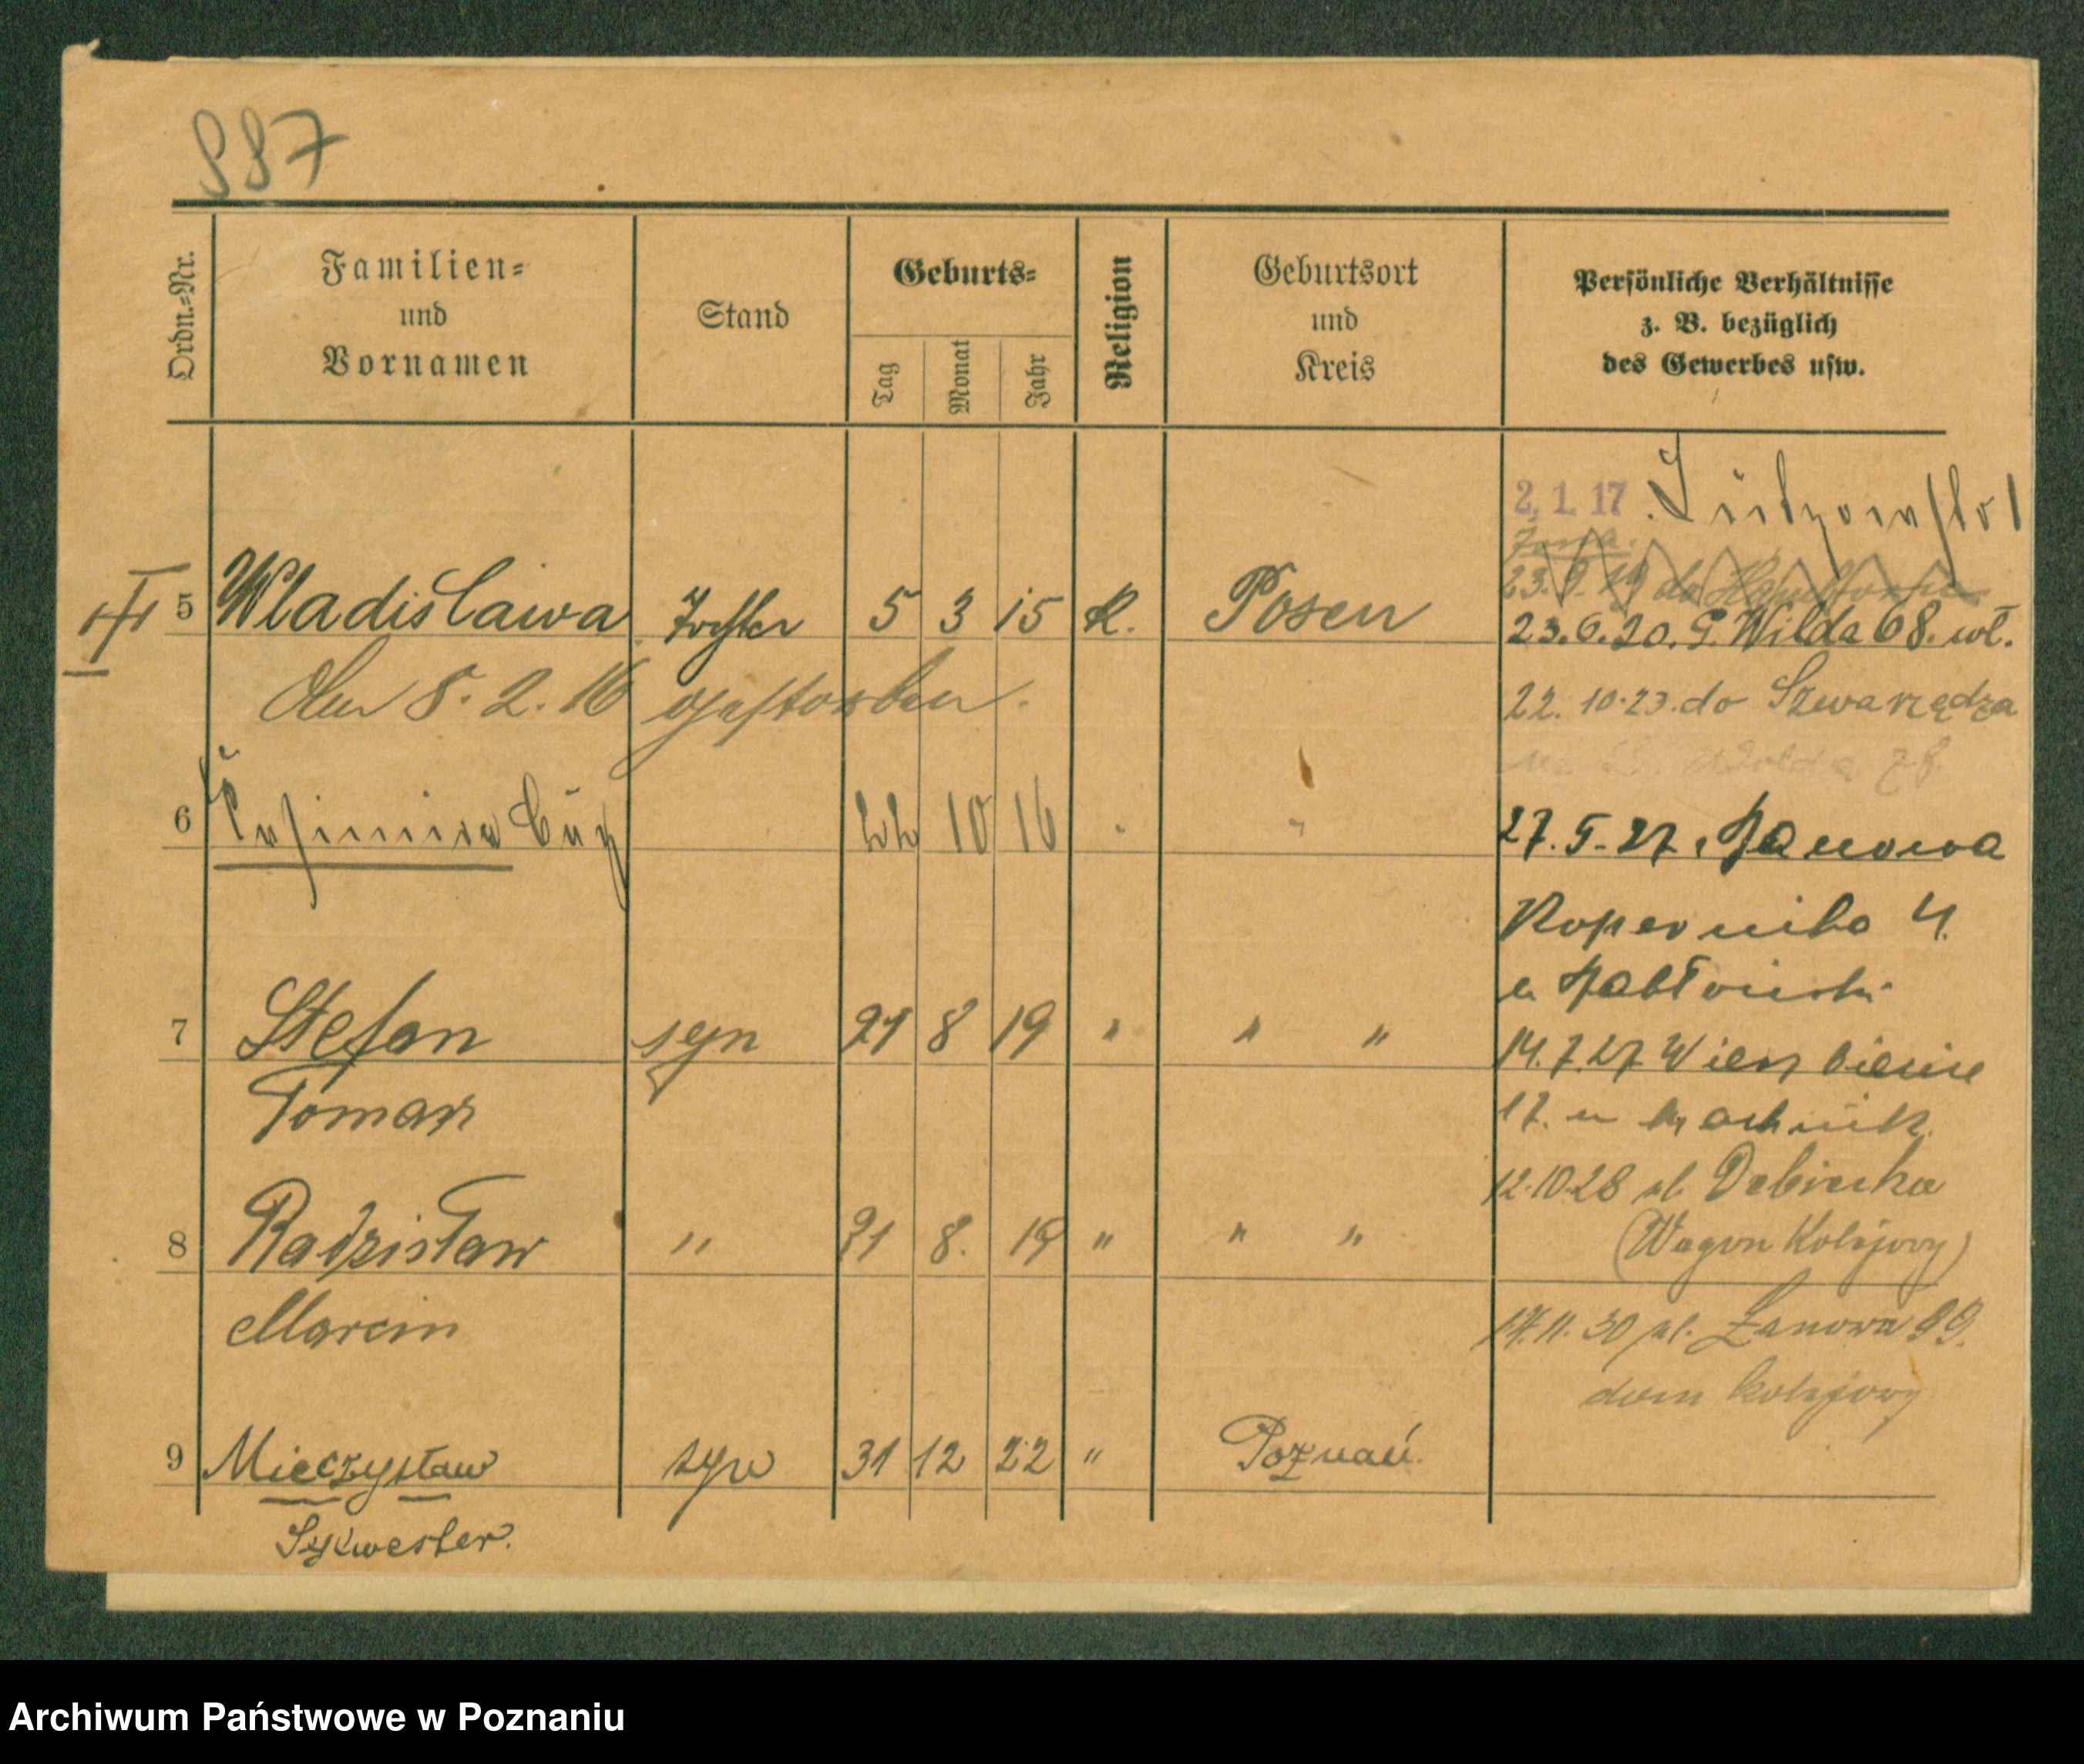 887
Ordn.-Nr.
Familien-
und
Vornamen
Stand
Geburts-
Tag
Monat
Jahr
Religion
Geburtsort
und
Kreis
Persönliche Verhältnisse
z. B. bezüglich
des Gewerbes usw.
2. 1. 17
5 Wladislawa Tochter 5 3 15 K. Posen
23.6.20. G. Wilda 68. wł.
den 8. 2. 16 gestorben.
22. 10.23. do Szwarzędza
6 Kasimira 10 16 "
27. 5. 27
Kopernika 4.
7 Stefan syn 21 8 19 " " "
14. 7. 27
Tomasz
17.
12.10.28 ul. Debiecka
8 Radzisław " 21 8. 19 " " "
(Wagon Kolejowy)
Marcin
17.11.30 ul. Łanowa 99.
dom kolejowy
9 Mieczysław syn 31 12 22 " Poznań.
Sylwester.
Archiwum Państwowe w Poznaniu